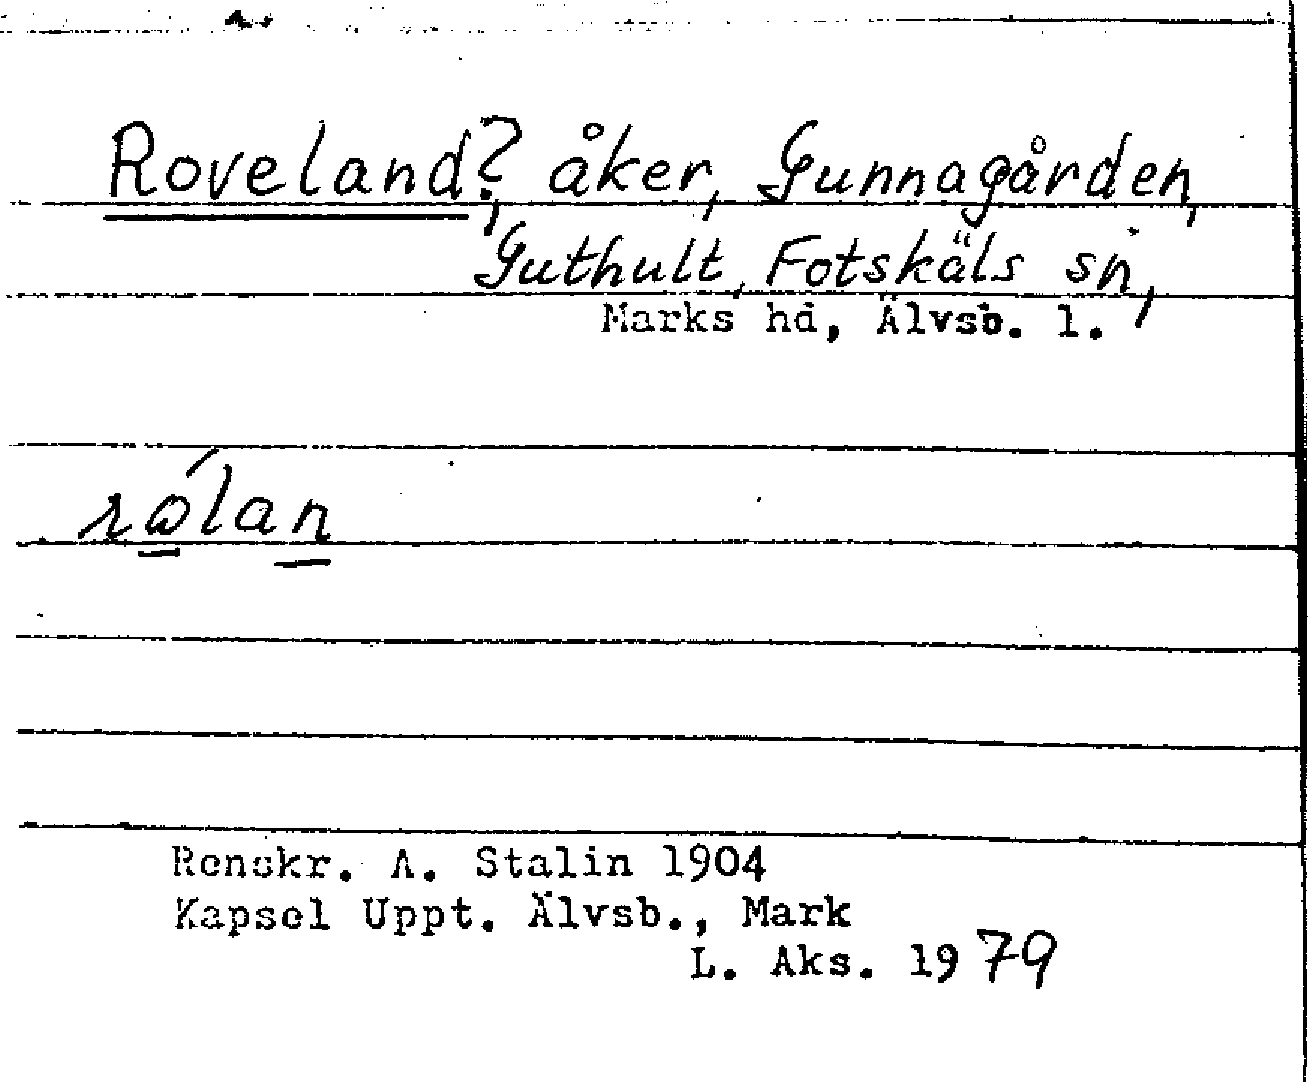 Roveland?, åker, Gunnagården,
Guthult, Fotskäls sn,
Marks hd, Älvsb. l.
rωĺan
Renskr. A. Stalin 1904
Kapsel Uppt. Älvsb., Mark
L. Aks. 1979